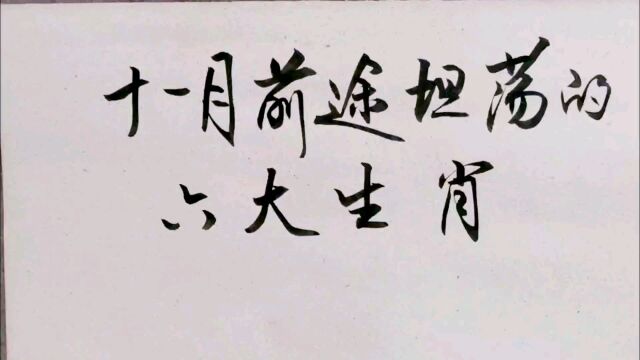 十一月前途坦荡的
六大生肖